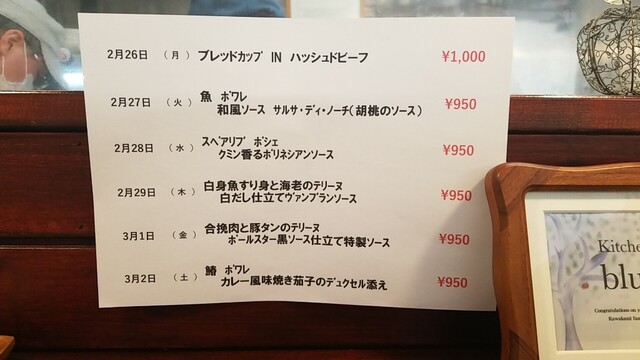 2月26日 (月) ブレッドカップ IN ハッシュドビーフ ¥1,000
2月27日 (火) 魚 ポワレ ¥950
和風ソース サルサ・ディ・ノーチ(胡桃のソース)
2月28日 (水) スペアリブ ポシェ ¥950
クミン香るポリネシアンソース
2月29日 (木) 白身魚すり身と海老のテリーヌ ¥950
白だし仕立てヴァンブランソース
3月1日 (金) 合挽肉と豚タンのテリーヌ ¥950
ポールスター黒ソース仕立て特製ソース
3月2日 (土) 鰆 ポワレ ¥950
カレー風味焼き茄子のデュクセル添え
Kitche
blu
Congratulations on y
Kawakami